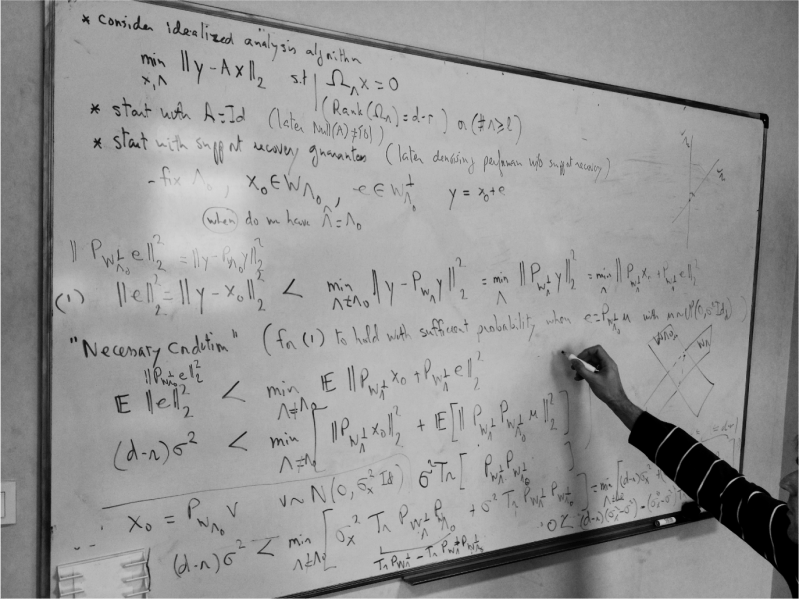 * consider idealized analysis algorithm
min_{x,Λ} ‖y-Ax‖_2 s.t | Ω_Λ x = 0
* start with A=Id (later Null(A)≠{0}) (Rank(Ω_Λ)=d-r) or (#Λ≥l)
* start with support recovery guarantees (later denoising w/o support recovery)
- fix Λ_0, x_0 ∈ W_{Λ_0}, e ∈ W_{Λ_0}^⊥ y = x_0+e
(when) do we have Λ̂=Λ_0
‖P_{W_{Λ_0}^⊥} e‖_2^2 = ‖y-P_{Λ_0}y‖_2^2
(1) ‖e‖_2^2 = ‖y-x_0‖_2^2 < min_{Λ≠Λ_0} ‖y-P_{W_Λ}y‖_2^2 = min_Λ ‖P_{W_Λ^⊥}y‖_2^2 = min_Λ ‖P_{W_Λ^⊥}x_0+P_{W_Λ^⊥}e‖_2^2
"Necessary Condition" (for (1) to hold with sufficient probability when e=P_{W_{Λ_0}^⊥}u with u~N(0,σ^2 Id))
‖P_{W_{Λ_0}^⊥}e‖_2^2
E ‖e‖_2^2 < min_{Λ≠Λ_0} E ‖P_{W_Λ^⊥}x_0+P_{W_Λ^⊥}e‖_2^2
W_{Λ_0} W_Λ
(d-r)σ^2 < min_{Λ≠Λ_0} [‖P_{W_Λ^⊥}x_0‖_2^2 + E[‖P_{W_Λ^⊥}P_{W_{Λ_0}^⊥}u‖_2^2]
σ^2 Tr[P_{W_Λ^⊥}P_{W_{Λ_0}^⊥}]
x_0 = P_{W_{Λ_0}}v v~N(0,σ_x^2 Id)
(d-r)σ^2 < min_{Λ≠Λ_0} [σ_x^2 Tr P_{W_Λ^⊥}P_{W_{Λ_0}} + σ^2 Tr P_{W_Λ^⊥}P_{W_{Λ_0}^⊥}] = min_{Λ≠Λ_0} [(d-r)σ_x^2
Tr P_{W_Λ^⊥} - Tr P_{W_Λ^⊥}P_{W_{Λ_0}^⊥}
0 < (d-r)(σ_x^2-σ^2) - (σ_x^2-σ^2)